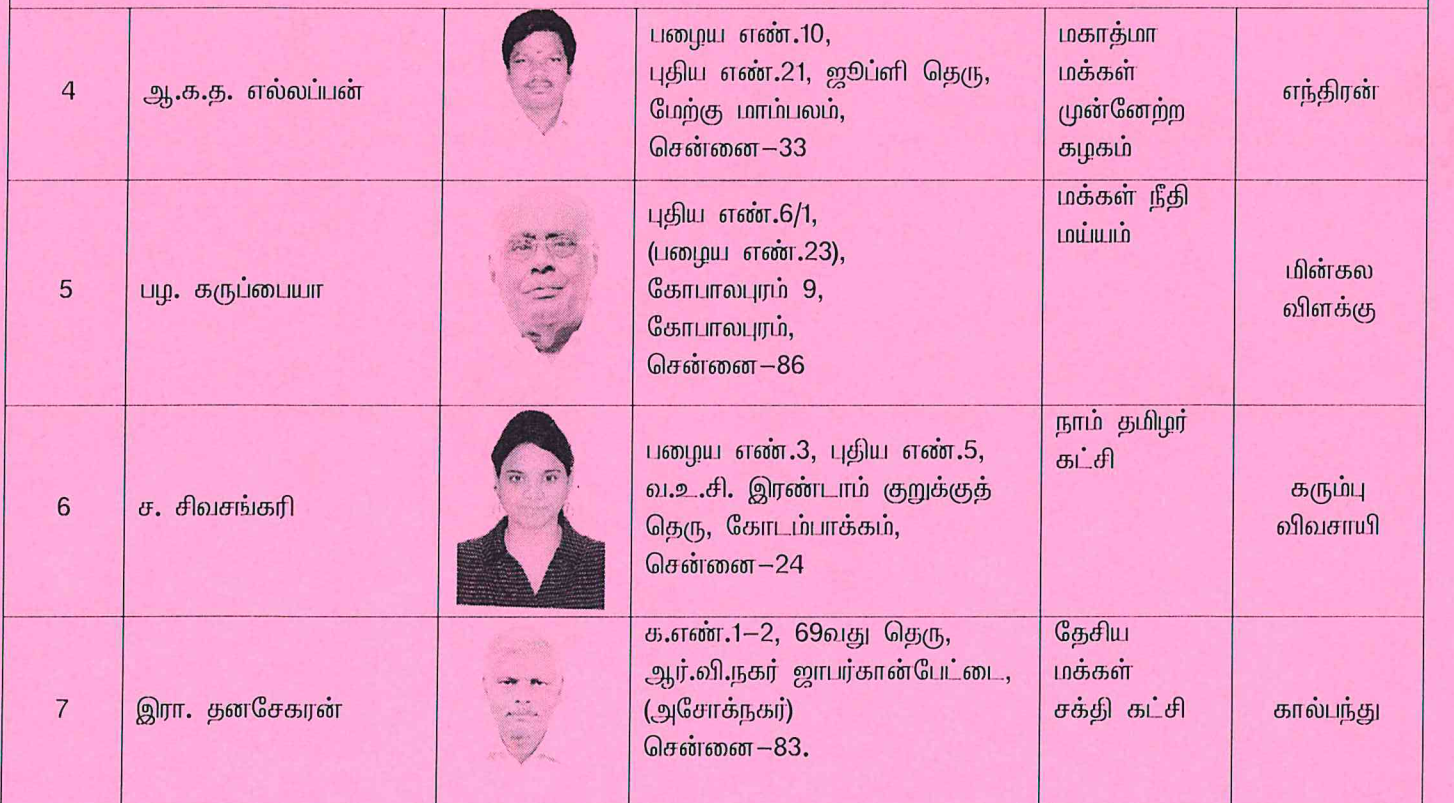 4
ஆ.க.த. எல்லப்பன்
பழைய எண்.10,
புதிய எண்.21, ஜூப்ளி தெரு,
மேற்கு மாம்பலம்,
சென்னை–33
மகாத்மா
மக்கள்
முன்னேற்ற
கழகம்
எந்திரன்
5
பழ. கருப்பையா
புதிய எண்.6/1,
(பழைய எண்.23),
கோபாலபுரம் 9,
கோபாலபுரம்,
சென்னை–86
மக்கள் நீதி
மய்யம்
மின்கல
விளக்கு
6
ச. சிவசங்கரி
பழைய எண்.3, புதிய எண்.5,
வ.உ.சி. இரண்டாம் குறுக்குத்
தெரு, கோடம்பாக்கம்,
சென்னை–24
நாம் தமிழர்
கட்சி
கரும்பு
விவசாயி
7
இரா. தனசேகரன்
க.எண்.1–2, 69வது தெரு,
ஆர்.வி.நகர் ஜாபர்கான்பேட்டை,
(அசோக்நகர்)
சென்னை–83.
தேசிய
மக்கள்
சக்தி கட்சி
கால்பந்து